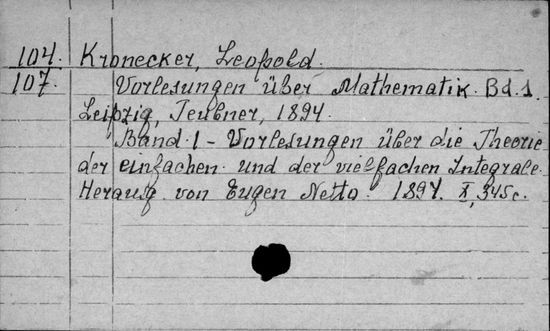 104. Kronecker, Leopold.
107. Vorlesungen über Mathematik. Bd. 1.
Leipzig, Teubner, 1894.
Band 1 - Vorlesungen über die Theorie
der einfachen und der vielfachen Integrale.
Herausg. von Eugen Netto. 1894. X, 345c.